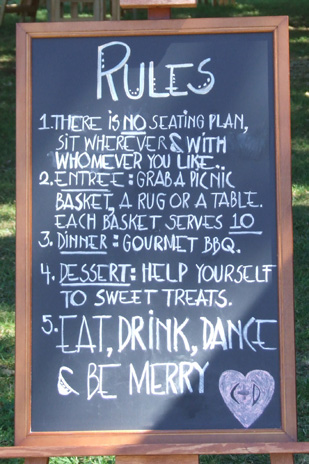 RULES
1. THERE IS NO SEATING PLAN,
SIT WHEREVER & WITH
WHOMEVER YOU LIKE..
2. ENTREE: GRAB A PICNIC
BASKET, A RUG OR A TABLE.
EACH BASKET SERVES 10
3. DINNER: GOURMET BBQ.
4. DESSERT: HELP YOURSELF
TO SWEET TREATS.
5. EAT, DRINK, DANCE
& BE MERRY
C+D